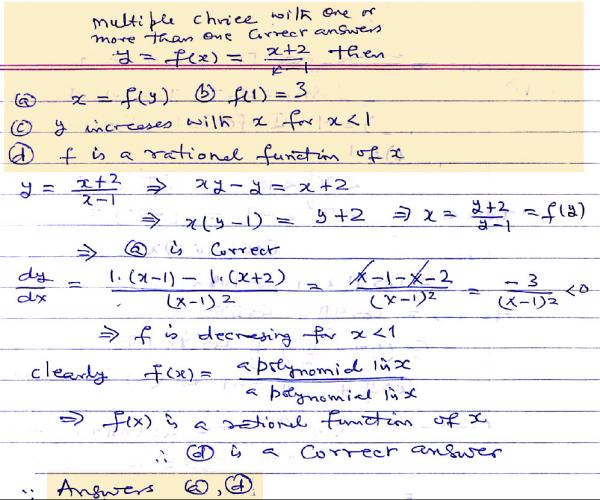 multiple choice with one or
more than one correct answers
y = f(x) = (x+2)/(x-1) then
(a) x = f(y) (b) f(1) = 3
(c) y increases with x for x<1
(d) f is a rational function of x
y = (x+2)/(x-1) ⇒ xy-y = x+2
⇒ x(y-1) = y+2 ⇒ x = (y+2)/(y-1) = f(y)
⇒ (a) is correct
dy/dx = (1.(x-1) - 1.(x+2))/(x-1)2 = (x-1-x-2)/(x-1)2 = -3/(x-1)2 <0
⇒ f is decreasing for x<1
clearly f(x) = a polynomial in x / a polynomial in x
⇒ f(x) is a rational function of x
∴ (d) is a correct answer
∴ Answers (a), (d)